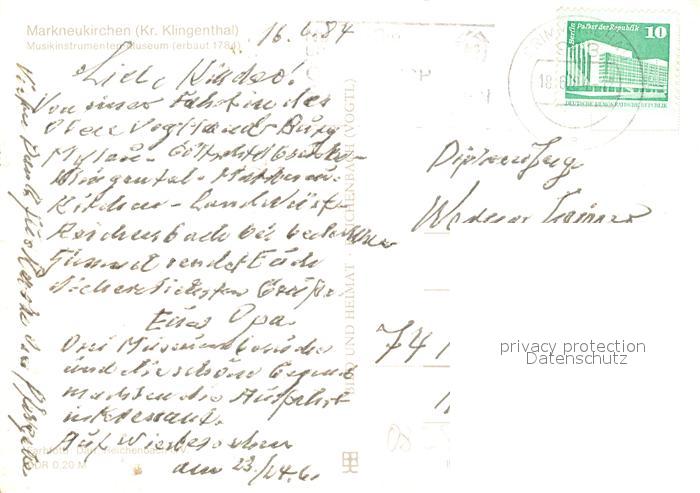 Markneukirchen (Kr. Klingenthal)
Musikinstrumenten-Museum (erbaut 1784)
16.6.84
Liebe Kinder!
Von einer Fahrt in das
Obere Vogtland - Burg
Mylau - Göltzschtalbrücke -
Klingental - Markneu-
kirchen - Landwüst -
Reichenbach bei bedecktem
Himmel sendet Euch
die herzlichsten Grüße
Euer Opa.
Drei Museumsbesuche
und die schöne Gegend
machten die Ausfahrt
interessant.
Auf Wiedersehen
am 23./24.6.
Vielen Dank für Karte
BILD UND HEIMAT REICHENBACH (VOGTL)
DDR 0,20 M
Berlin, Palast der Republik
10
DEUTSCHE DEMOKRATISCHE REPUBLIK
18.6
Dipl.
74
privacy protection
Datenschutz